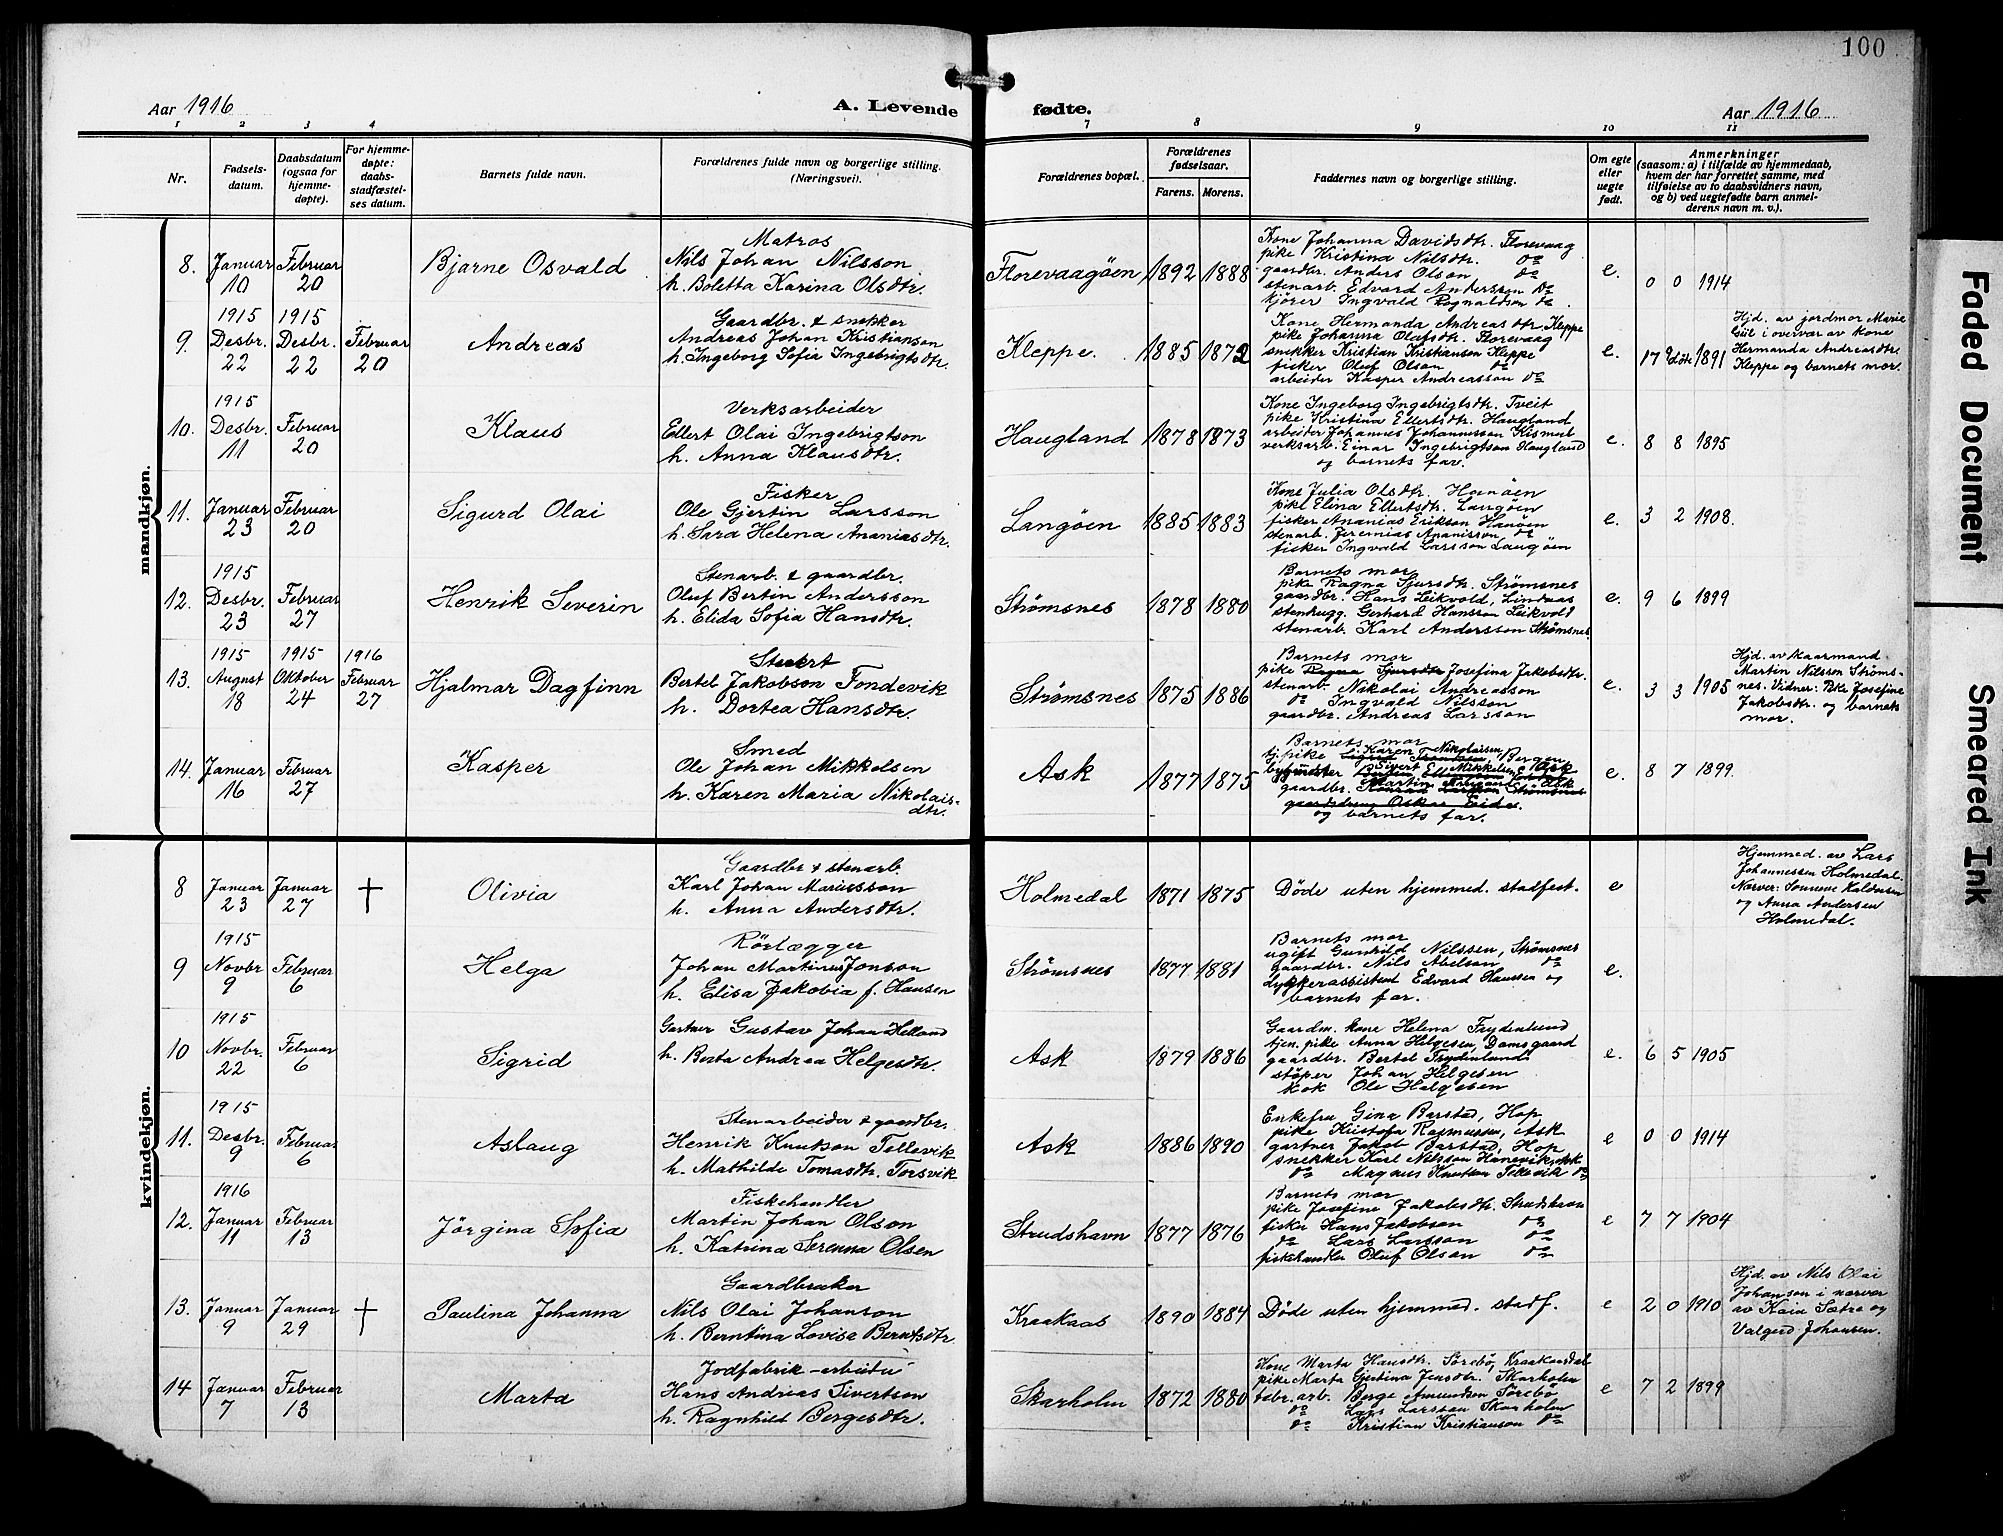 100
Aar 1916
A. Levende
fødte.
Aar 1916
1 2 3 4 7 8 9 10 11
Nr.
Fødsels-
datum.
Daabsdatum
(ogsaa for
hjemme-
døpte).
For hjemme-
døpte:
daabs-
stadfæstel-
ses datum.
Barnets fulde navn.
Forældrenes fulde navn og borgerlige stilling.
(Næringsvei).
Forældrenes bopæl.
Forældrenes
fødselsaar.
Farens. Morens.
Faddernes navn og borgerlige stilling.
Om egte
eller
uegte
født.
Anmerkninger
(saasom: a) i tilfælde av hjemmedaab,
hvem der har forrettet samme, med
tilføielse av to daabsvidners navn,
og b) ved uegtefødte barn anmel-
derens navn m. v.).
mandkjøn.
8. Januar 10
Februar 20
Bjarne Osvald
Matros
Nils Johan Nilsson
h. Boletta Karina Olsdtr.
Florevaagøen 1892 1888
Kone Johanna Davidsdtr. Florevaag
pike Kristina Nilsdtr. do
gaardbr. Anders Olson do
stenarb. Edvard Andersson do
kjører Ingvald Ragnaldsen do.
e.
0 0 1914
9. 1915 Desbr. 22
1915 Desbr. 22
Februar 20
Andreas
Gaardbr. & snekker
Andreas Johan Kristianson
h. Ingeborg Sofia Ingebrigtsdtr.
Kleppe. 1885 1872
Kone Hermanda Andreasdtr. Kleppe
pike Johanna Olafsdtr. Florevaag
snekker Kristian Kristianson Kleppe
fisker Oluf Olson do
arbeider Kasper Andreasson do
e.
17 1891
Hjd. av jordmor Marie
i overvær av kone
Hermanda Andreasdtr.
Kleppe og barnets mor.
10. 1915 Desbr. 11
Februar 20
Klaus
Verksarbeider
Ellert Olai Ingebrigtson
h. Anna Klausdtr.
Haugland 1878 1873
Kone Ingeborg Ingebrigtsdtr. Tveit
pike Kristina Ellertsdtr. Haugland
arbeider Johannes Johannesson
verksarb. Einar Ingebrigtson Haugland
og barnets far.
e.
8 8 1895
11. Januar 23
Februar 20
Sigurd Olai
Fisker
Ole Gjertin Larsson
h. Sara Helena Ananiasdtr.
Langøen 1885 1883
Kone Julia Olsdtr. Hanøen
pike Elina Ellertsdtr. Langøen
fisker Ananias Erikson Hanøen
stenarb. Jeremias Ananisson, do
fisker Ingvald Larsson Langøen
e.
3 2 1908.
12. 1915 Desbr. 23
Februar 27
Henrik Severin
Stenarb. & gaardbr.
Oluf Bertin Andersson
h. Elida Sofia Hansdtr.
Strømsnes 1878 1880
Barnets mor
pike Ragna Sjursdtr. Strømsnes
gaardbr. Hans Leikvold, Lindaas
stenhugg. Gerhard Hansson Leikvold
stenarb. Karl Andersson Strømsnes.
e.
9 6 1899
13. 1915 August 18
1915 Oktober 24
1916 Februar 27
Hjalmar Dagfinn
Stuert
Bertel Jakobson Fondevik
h. Dortea Hansdtr.
Strømsnes 1875 1886
Barnets mor
pike Ragna Sjursdtr Josefina Jakobsdtr.
stenarb. Nikolai Andreasson
do Ingvald Nilsson
gaardbr. Andreas Larsson
e.
3 3 1905
Hjd. av kaarmand
Martin Nilsson Strøms-
nes. Vidner: Pike Josefine
Jakobsdtr. og barnets
mor.
14. Januar 16
Februar 27
Kasper
Smed
Ole Johan Mikkelsen
h. Karen Maria Nikolais-
dtr.
Ask 1877 1875
Barnets mor
tj.pike Karen Nikolaisen, Bergen
Sivert Mikkelsen Ask
gaardbr. Martin Ask
gaardsdreng Oskar Eide.
og barnets far.
e.
8 7 1899.
kvindekjøn.
8 Januar 23
Januar 27
†
Olivia
Gaardbr & stenarb.
Karl Johan Mariusson
h. Anna Andersdtr.
Holmedal 1871 1875
Døde uten hjemmed. stadfest.
e
Hjemmed. av Lars
Johannessen Holmedal.
Nærver:
og Anna Andersen
Holmedal.
9 1915 Novbr. 9
Februar 6
Helga
Rørlægger
Johan Martinus Jonson
h. Elisa Jakobia f. Hansen
Strømsnes 1877 1881
Barnets mor
ugift Gunhild Nilssen, Strømsnes
gaardbr. Nils Abelson do
dykkerassistent Edvard Hanssen og
barnets far.
e.
10 1915 Novbr. 22
Februar 6
Sigrid
Gartner Gustav Johan Helland
h. Berta Andrea Helgesdtr.
Ask 1879 1886
Gaardm. kone Helena Frydenlund
tjen. pike Anna Helgesen, Damsgaard
gaardbr. Bertel Frydenlund
støper Johan Helgesen
kok Ole Helgesen
e.
6 5 1905
11. 1915 Desbr. 9
Februar 6
Aslaug
Stenarbeider & gaardbr.
Henrik Knutson Tellevik
h. Mathilde Tomasdtr. Torsvik
Ask 1886 1890
Enkefru Gina Barstad, Hop
pike Kristofa Rasmussen, Ask
gartner Jakob Barstad, Hop
snekker Karl Nilsson Hanevik, Ask
do Magnus Knutson Tellevik do
e
0 0 1914
12. 1916 Januar 11
Februar 13
Jørgina Sofia
Fiskehandler
Martin Johan Olson
h. Katrina Serenna Olsen
Strudshavn 1877 1876
Barnets mor
pike Josefine Jakobsdtr. Strudshavn
fisker Hans Jakobson do
do Lars Larsson do
fiskehandler Oluf Olson do
e
7 7 1904
13. Januar 9
Januar 29
†
Paulina Johanna
Gaardbruker
Nils Olai Johanson
h. Berntina Lovisa Berntsdtr.
Kraakaas 1890 1884
Døde uten hjemmed. stadf.
e
2 0 1910
Hjd. av Nils Olai
Johanson i nærver
av Kaia Sætre og
Valgerd Johansen.
14 Januar 7
Februar 13
Marta
Jodfabrik-arbeider
Hans Andreas Sivertson
h. Ragnhild Bergesdtr.
Skarholm 1872 1880
Kone Marta Hansdtr. Sørebø, Kraakaasdal
pike Marta Gjertina Jensdtr. Skarholm
fabr. arb. Berge Amundsen Sørebø
do Lars Larsson Skarholm
do Kristian Kristianson do
e
7 2 1899
Faded Document
Smeared Ink